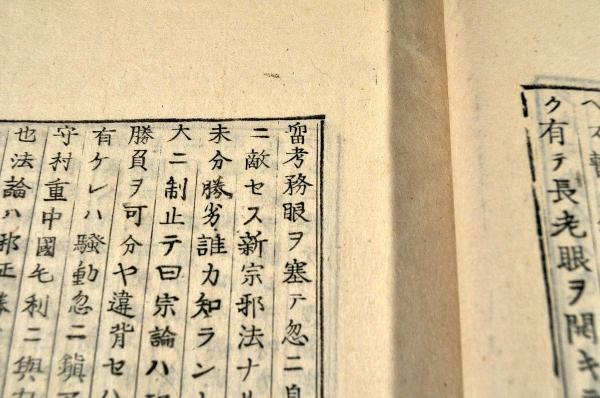 ク有テ長老眼ヲ開キ
留考務眼ヲ塞テ忽ニ自
ニ敵セス新宗邪法ナル
未分勝劣誰カ知ラン
大ニ制止テ曰宗論ハ
勝負ヲ可分ヤ違背セハ
有ケレハ騒動忽ニ鎮
守村重中國毛利ニ與
也法論ハ邪正